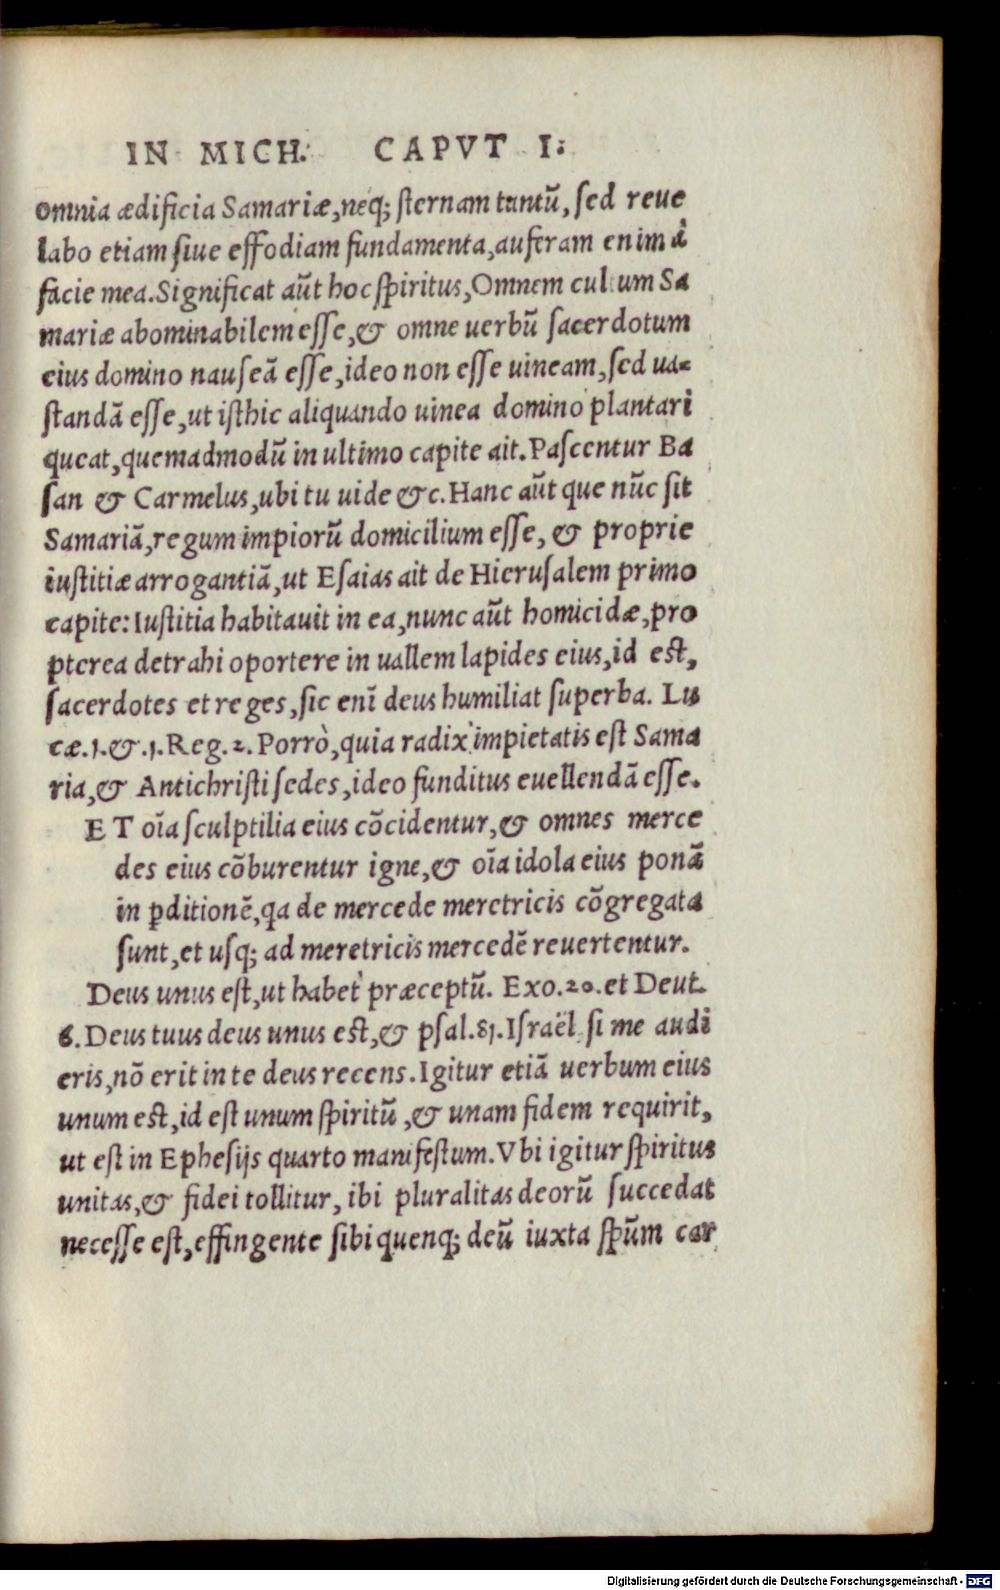 IN MICH. CAPVT I.
omnia ædificia Samariæ,neq; sternam tantū, sed reue
labo etiam siue effodiam fundamenta,auferam enim à
facie mea.Significat aūt hoc spiritus,Omnem cultum Sa
mariæ abominabilem esse,& omne uerbū sacerdotum
eius domino nauseā esse,ideo non esse uineam,sed ua-
standā esse,ut isthic aliquando uinea domino plantari
queat,quemadmodū in ultimo capite ait.Pascentur Ba
san & Carmelus,ubi tu uide &c.Hanc aūt que nūc sit
Samariā,regum impiorū domicilium esse, & proprie
iustitiæ arrogantiā,ut Esaias ait de Hierusalem primo
capite: Iustitia habitauit in ea,nunc aūt homicidæ,pro
pterea detrahi oportere in uallem lapides eius,id est,
sacerdotes et reges,sic enī deus humiliat superba. Lu
cæ.1.&.1.Reg.2.Porrò,quia radix impietatis est Sama
ria,& Antichristi sedes,ideo funditus euellendā esse.
ET oīa sculptilia eius cōcidentur,& omnes merce
des eius cōburentur igne,& oīa idola eius ponā
in ꝑditionē,qa de mercede meretricis cōgregata
sunt,et usq; ad meretricis mercedē reuertentur.
Deus unus est,ut habet præceptū. Exo.20.et Deut.
6.Deus tuus deus unus est,& psal.81.Israël si me audi
eris,nō erit in te deus recens.Igitur etiā uerbum eius
unum est,id est unum spiritū ,& unam fidem requirit,
ut est in Ephesijs quarto manifestum.Vbi igitur spiritus
unitas,& fidei tollitur, ibi pluralitas deorū succedat
necesse est,effingente sibi quenq; deū iuxta spūm car
Digitalisierung gefördert durch die Deutsche Forschungsgemeinschaft - DFG